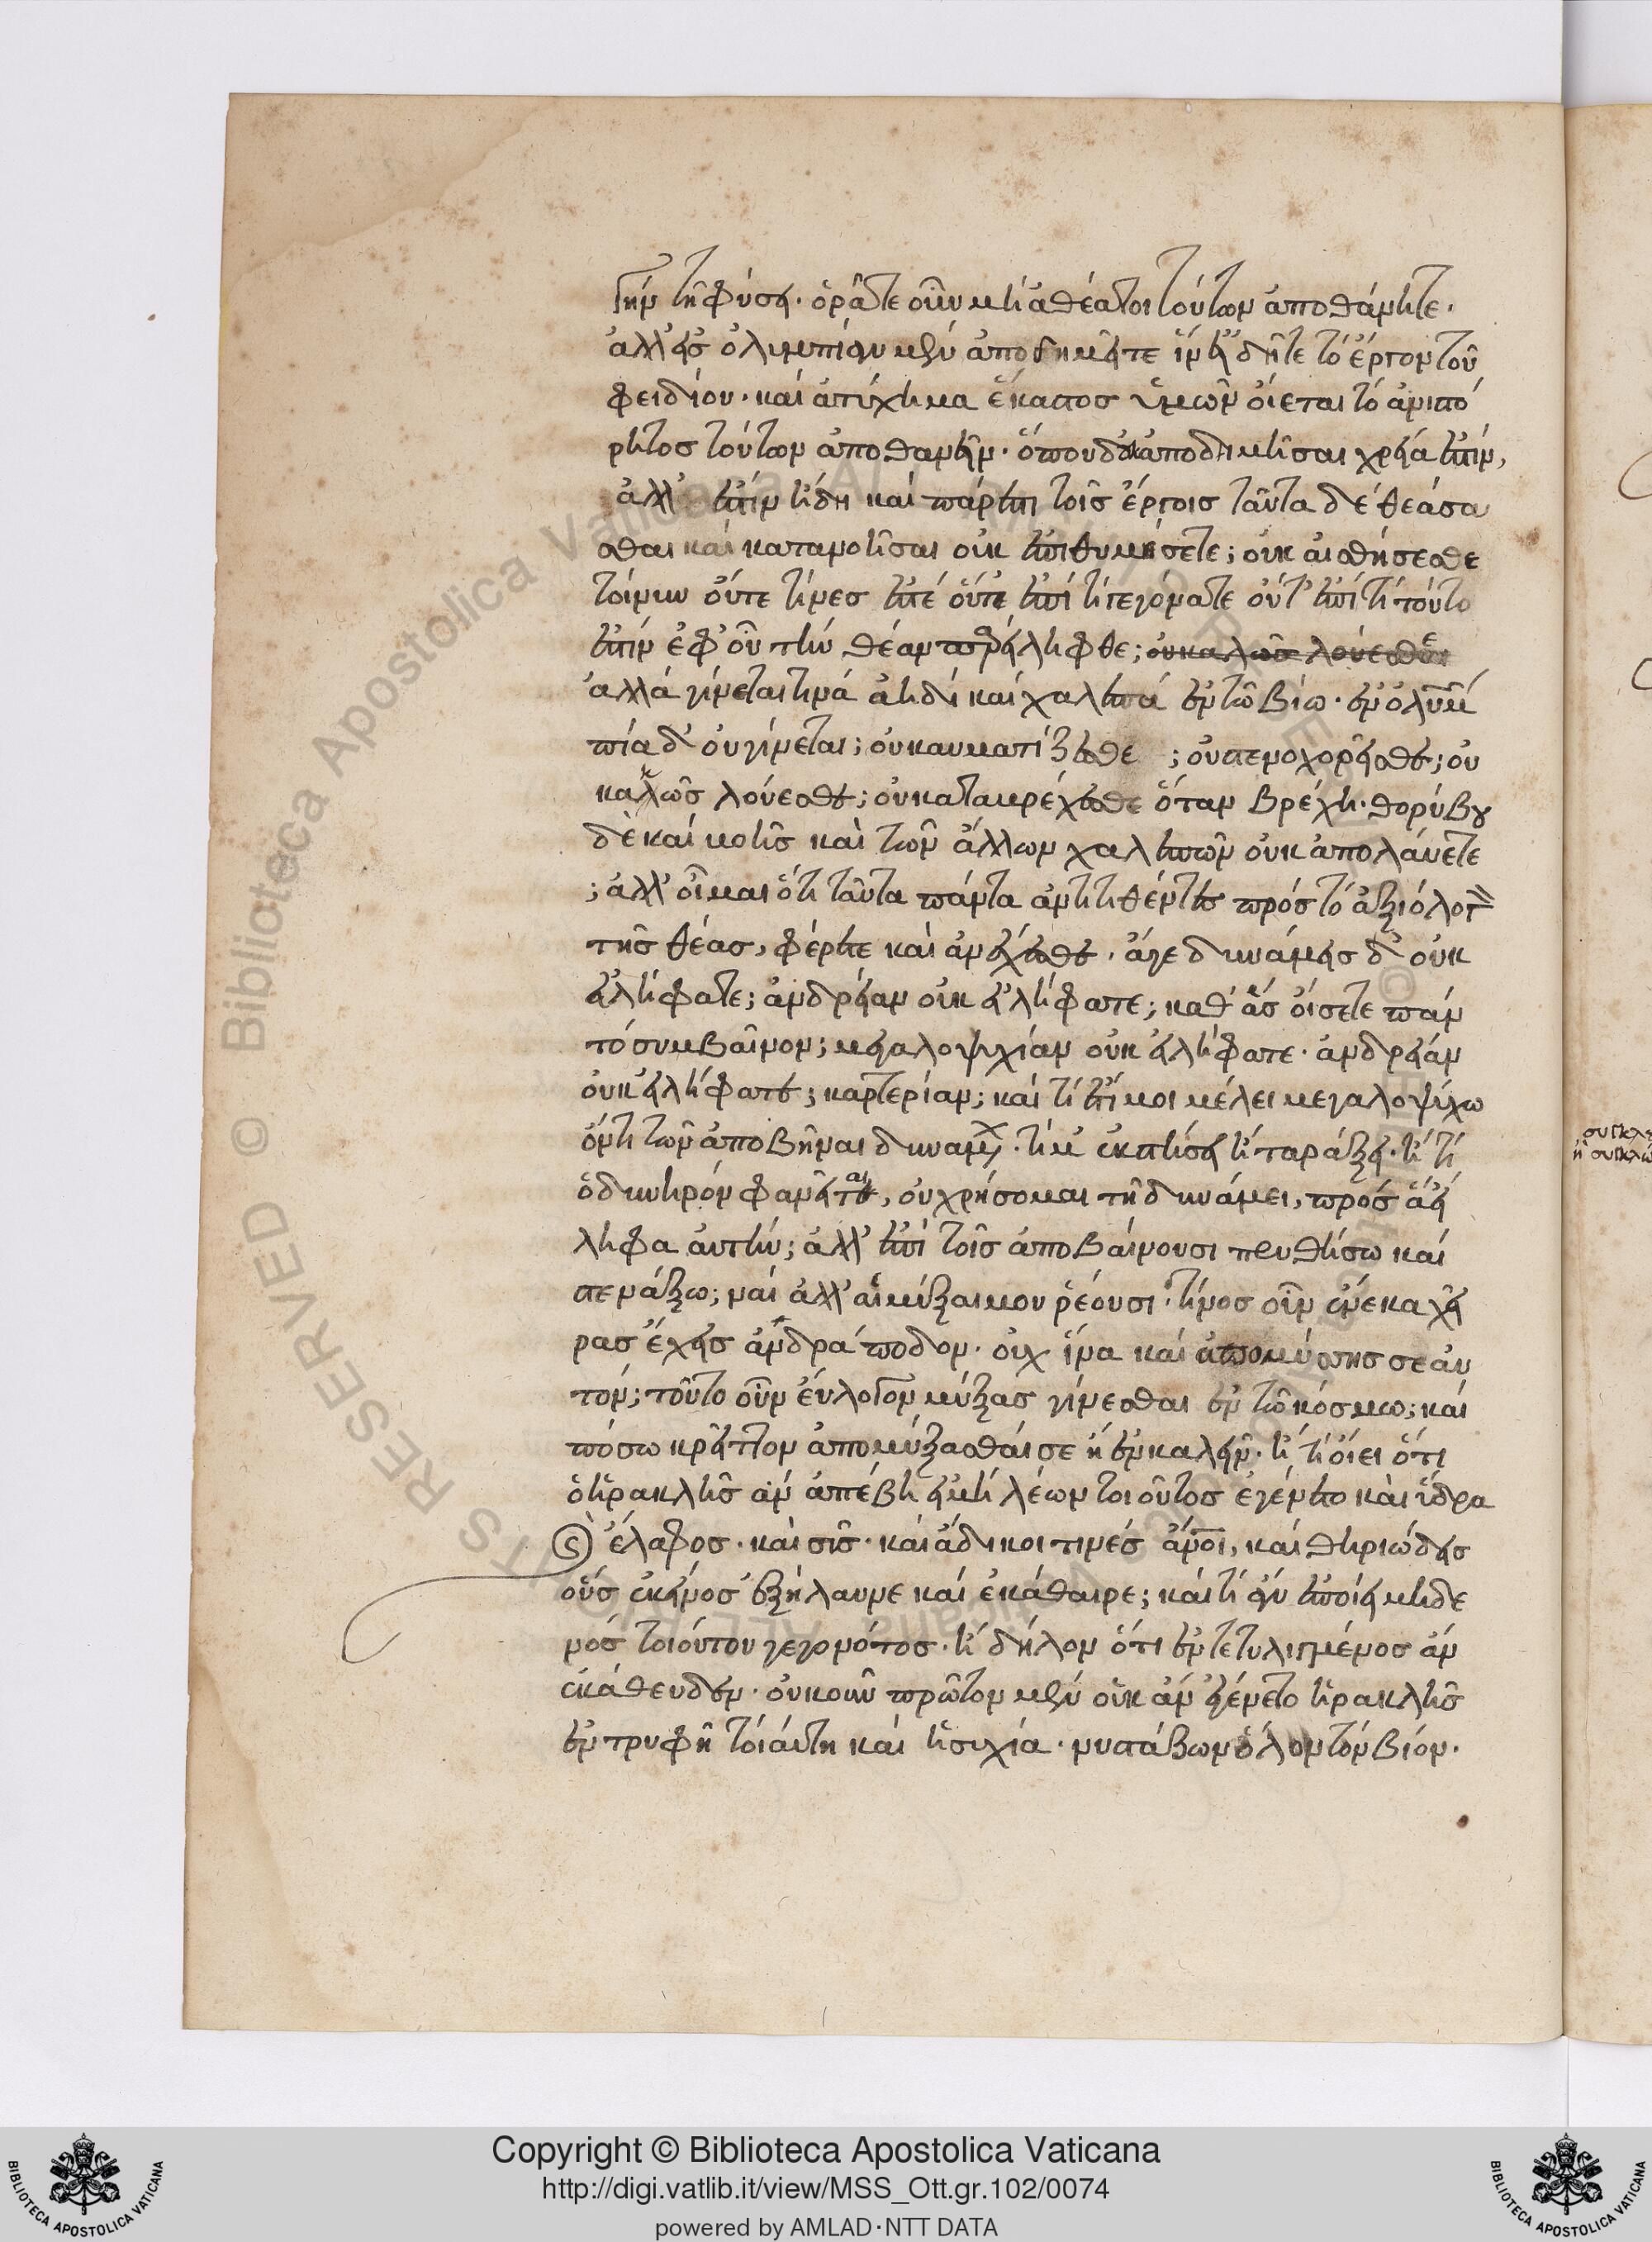 γὴν τῆ φύσει. ὁρᾶτε οὖν μὴ ἀθέατοι τούτων ἀποθάνητε.
ἀλλ' εἰς ὀλυμπίαν μὲν ἀποδημεῖτε ἵν' εἰδῆτε τὸ ἔργον τοῦ
φειδίου. καὶ ἀτύχημα ἕκαστος ὑμῶν οἴεται τὸ ἀνιστό
ρητος τούτων ἀποθανεῖν. ὅπου δ' οὐκ ἀποδημῆσαι χρεία ἐστίν,
ἀλλ' ἐστὶν ἤδη καὶ πάρεστι τοῖς ἔργοις ταῦτα δὲ θεάσα
σθαι καὶ κατανοῆσαι οὐκ ἐπιθυμήσετε; οὐκ αἰσθήσεσθε
τοίνυν οὔτε τίνες ἐστὲ οὔτε ἐπὶ τί γεγόνατε οὔτ' ἐπὶ τί τοῦτο
ἐστὶν ἐφ' οὗ τὴν θέαν παρείληφθε;
ἀλλὰ γίνεται τινὰ ἀηδῆ καὶ χαλεπὰ ἐν τῶ βίω. ἐν ὀλυμ
πία δ' οὐ γίνεται; οὐ καυματίζεσθε; οὐ στενοχορεῖσθε; οὐ
κακῶς λούεσθε; οὐ καταβρέχεσθε ὅταν βρέχη. θορύβου
δὲ καὶ βοῆς καὶ τῶν ἄλλων χαλεπῶν οὐκ ἀπολαύετε
; ἀλλ' οἶμαι ὅτι ταῦτα πάντα ἀντιτιθέντες πρὸς τὸ ἀξιόλογ
τῆς θέας, φέρετε καὶ ἀνέχεσθε. ἄγε δυνάμεις δ' οὐκ
εἰλήφατε; ἀνδρείαν οὐκ εἰλήφατε; καθ' ἃς οἴσετε πᾶν
τὸ συμβαῖνον; μεγαλοψυχίαν οὐκ εἰλήφατε. ἀνδρείαν
οὐκ εἰλήφατε; καρτερίαν; καὶ τί ἔτι μοι μέλει μεγαλοψύχω
ὄντι τῶν ἀποβῆναι δυναμ. τί μ' ἐκστήσει ἢ ταράξει. ἢ τί
ὀδυνηρὸν φανεῖται, οὐ χρήσομαι τῆ δυνάμει, πρὸς ἃ εἴ
ληφα αὐτήν; ἀλλ' ἐπὶ τοῖς ἀποβαίνουσι πενθήσω καὶ
στενάξω; ναὶ ἀλλ' αἱ μύξαι μου ῥέουσι. τίνος οὖν ἕνεκα χεῖ
ρας ἔχεις ἀνδράποδον. οὐχ ἵνα καὶ ἀπομύσσης σεαυ
τόν; τοῦτο οὖν εὔλογον μύξας γίνεσθαι ἐν τῶ κόσμω; καὶ
πόσω κρεῖττον ἀπομύξασθαί σε ἢ ἐγκαλεῖν. ἢ τί οἴει ὅτι
ὁ ἡρακλῆς ἂν ἀπέβη εἰ μὴ λέων τοιοῦτος ἐγένετο καὶ ὕδρα
καὶ ἔλαφος. καὶ σῦς. καὶ ἄδικοι τινὲς ἄνοι, καὶ θηριώδεις
οὓς ἐκεῖνος ἐξήλαυνε καὶ ἐκάθαιρε; καὶ τί ἂν ἐποίει μηδε
νὸς τοιούτου γεγονότος. ἢ δῆλον ὅτι ἐντετυλιγμένος ἂν
ἐκάθευδεν. οὐκοῦν πρῶτον μὲν οὐκ ἂν ἐγένετο ἡρακλῆς
ἐν τρυφῆ τοιαύτη καὶ ἡσυχία. νυστάζων ὅλον τὸν βίον.
Copyright © Biblioteca Apostolica Vaticana
http://digi.vatlib.it/view/MSS_Ott.gr.102/0074
powered by AMLAD·NTT DATA
BIBLIOTECA APOSTOLICA VATICANA
BIBLIOTECA APOSTOLICA VATICANA